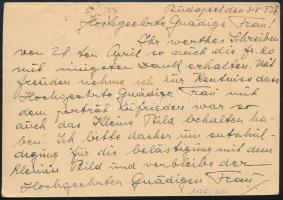 Budapest den 3-V-937
Hochgeehrte Gnädige Frau!
Ihr werthes Schreiben
von 28 ten April so auch die
mit innigsten Dank erhalten. Mit
Freuden nehme ich zur Kentniss dass
Hochgeehrte Gnädige Frau mit
dem porträt zufrieden war so
auch das Kleine Bild behalten ha-
ben. ich bitte daher um entschul-
digung für die belästigung mit dem
kleinen Bild und verbleibe der
Hochgeehrten Gnädigen Frau